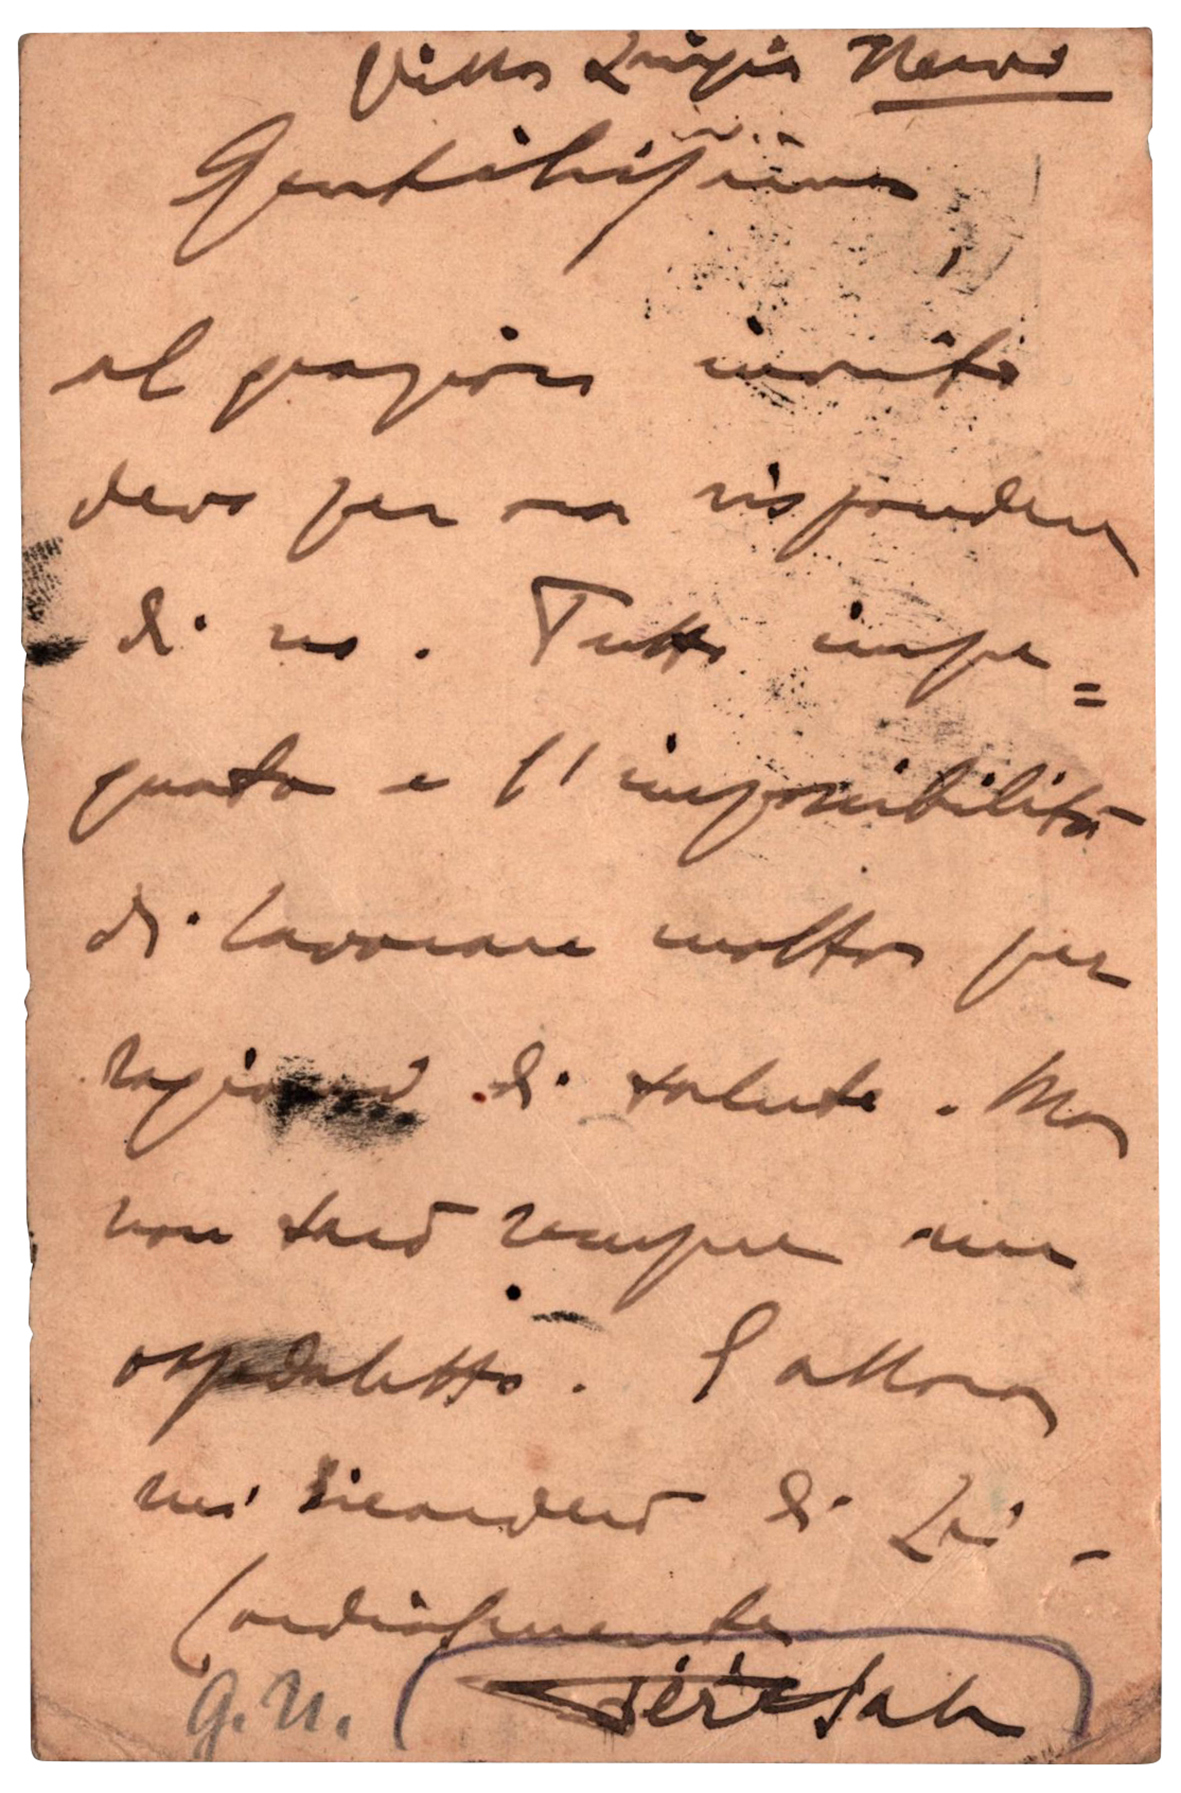 Villa Luigia Nervi
Gentilissimo,
al grazioso invito
devo per ora rispondere
di no. Tutto impe=
gnato e l'impossibilità
di lavorare molto per
ragioni di salute. Ma
non sarò sempre un
ospedaletto. E allora
mi ricorderò di Lei -
Cordialmente
Térésah
G. U.